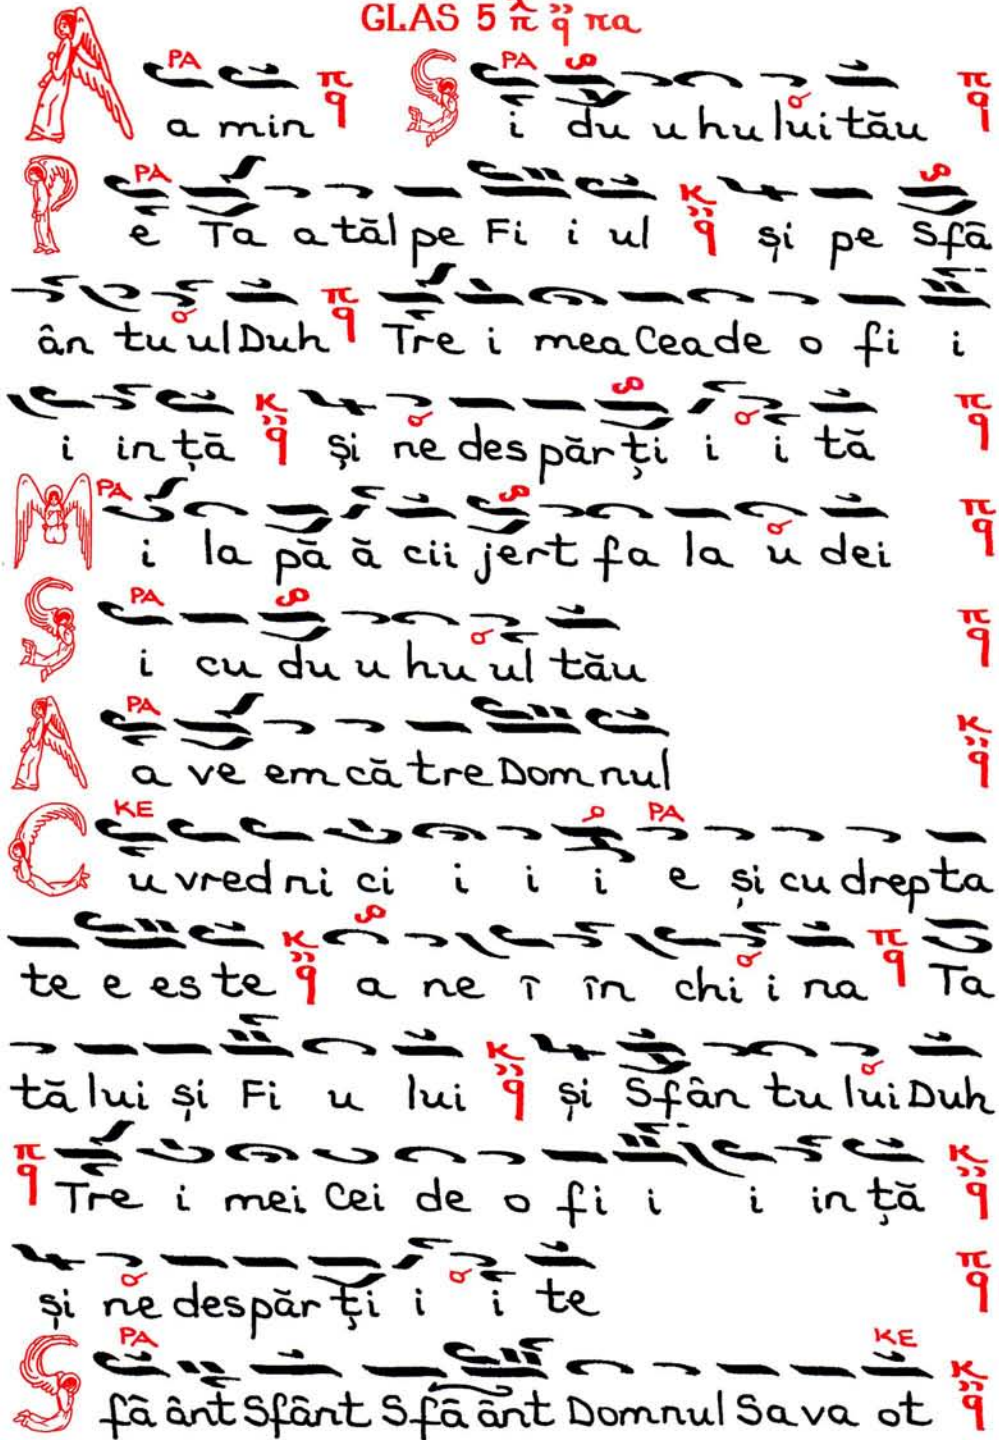 GLAS 5 π̂ q̈ πα
PA π q PA π q
A a min S i du u hu lui tău
PA K q
P e Ta a tăl pe Fi i ul și pe Sfâ
π q
ân tu ul Duh Tre i mea Cea de o fi i
K q π q
i in ță și ne des păr ți i i tă
PA π q
M i la pă ă cii jert fa la u dei
PA π q
S i cu du u hu ul tău
PA K q
A a ve em că tre Dom nul
KE PA
C u vred ni ci i i i e și cu drep ta
K q π q
te e es te a ne î în chi i na Ta
K q
tă lui și Fi u lui și Sfân tu lui Duh
π q K q
Tre i mei Cei de o fi i i in ță
π q
și ne des păr ți i i te
PA KE K q
S fâ ânt Sfânt Sfâ ânt Domnul Sa va ot